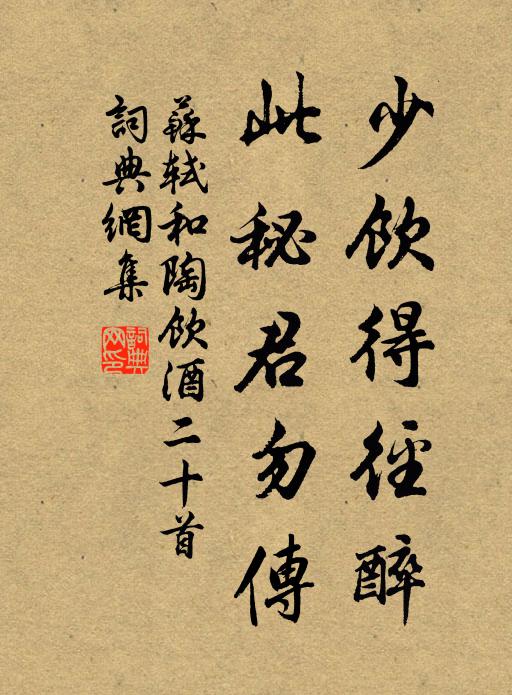 少飲得徑醉
此秘君勿傳
蘇軾和陶飲酒二十首
詞典網集
詞典網印